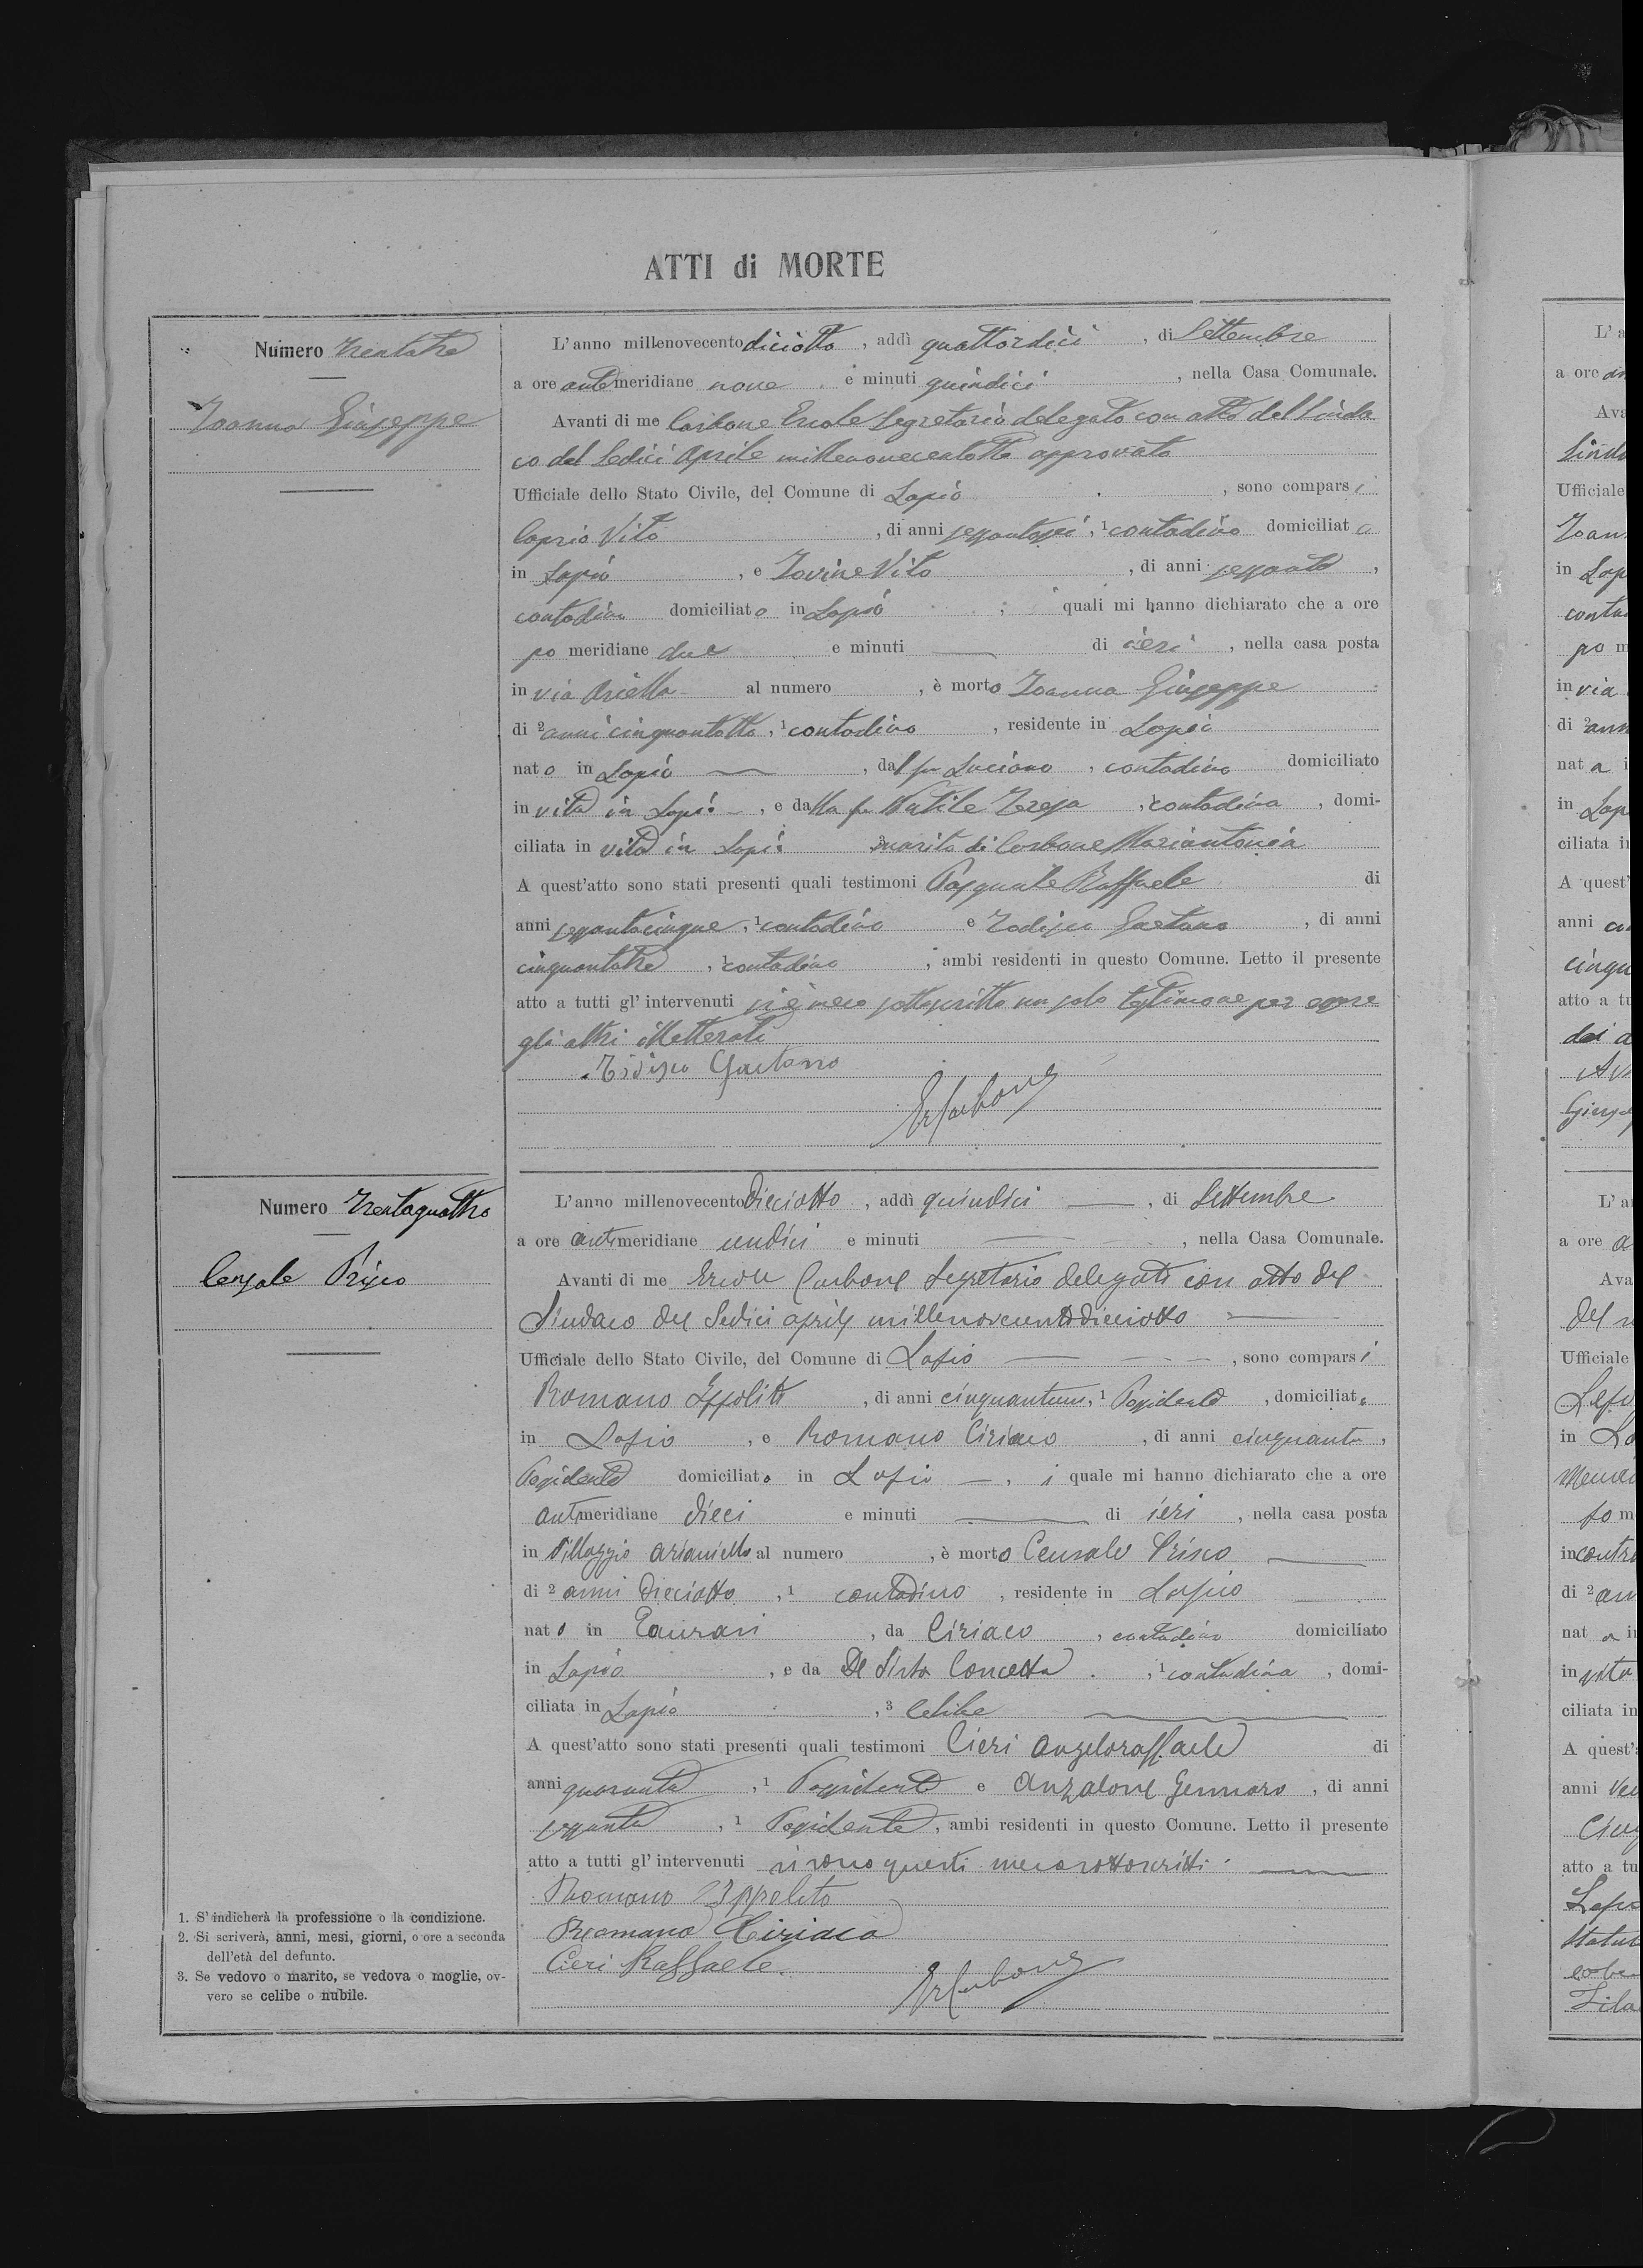 ATTI di MORTE
Numero Trentatre
Ioanna Giuseppe
L'anno millenovecento diciotto, addì quattordici, di Settembre
a ore antemeridiane nove e minuti quindici, nella Casa Comunale.
Avanti di me Carbone Ercole Segretario delegato con atto del Sinda
co del Sedici Aprile approvato
Ufficiale dello Stato Civile, del Comune di Lapio, sono comparsi
Caprio Vito, di anni sessantasei, 1 contadino domiciliato
in Lapio, e Iovine Vito, di anni sessanta,
contadino domiciliato in Lapio, i quali mi hanno dichiarato che a ore
po meridiane due e minuti — di ieri, nella casa posta
in via Ariella al numero , è morto Ioanna Giuseppe
di 2 anni cinquantotto, 1 contadino, residente in Lapio
nato in Lapio —, dal fu Luciano, contadino domiciliato
in vita in Lapio —, e dalla fu Teresa, contadina, domi-
ciliata in vita in Lapio 3 marito di Carbone Mariantonia
A quest'atto sono stati presenti quali testimoni Pasquale Raffaele di
anni sessantacinque, 1 contadino e Todisco Gaetano, di anni
cinquantatre, 1 contadino, ambi residenti in questo Comune. Letto il presente
atto a tutti gl'intervenuti si è meco sottoscritto un solo testimone per essere
gli altri illetterati
Todisco Gaetano
ErCarbone
Numero Trentaquattro
Censale Prisco
L'anno millenovecento dieciotto, addì quindici —, di Settembre
a ore antimeridiane undici e minuti —, nella Casa Comunale.
Avanti di me Ercole Carbone Segretario delegato con atto del
Sindaco del Sedici aprile millenovecentodieciotto —
Ufficiale dello Stato Civile, del Comune di Lapio — — —, sono comparsi
Romano Ippolito, di anni cinquantuno, 1 Possidente, domiciliato
in Lapio, e Romano Ciriaco, di anni cinquanta,
Possidente domiciliato in Lapio —, i quale mi hanno dichiarato che a ore
antimeridiane dieci e minuti — di ieri, nella casa posta
in Villaggio Arianiello al numero , è morto Censale Prisco —
di 2 anni dieciotto, 1 contadino, residente in Lapio —
nato in Taurasi, da Ciriaco, contadino domiciliato
in Lapio, e da De Sisto Concetta, 1 contadina, domi-
ciliata in Lapio, 3 Celibe —
A quest'atto sono stati presenti quali testimoni Cieri Angeloraffaele di
anni quaranta, 1 Possidente e Anzalone Gennaro, di anni
sessanta, 1 Possidente, ambi residenti in questo Comune. Letto il presente
atto a tutti gl'intervenuti si sono questi meco sottoscritti. —
Romano Ippolito
Romano Ciriaco
Cieri Raffaele.
ErCarbone
1. S'indicherà la professione o la condizione.
2. Si scriverà, anni, mesi, giorni, o ore a seconda
dell'età del defunto.
3. Se vedovo o marito, se vedova o moglie, ov-
vero se celibe o nubile.